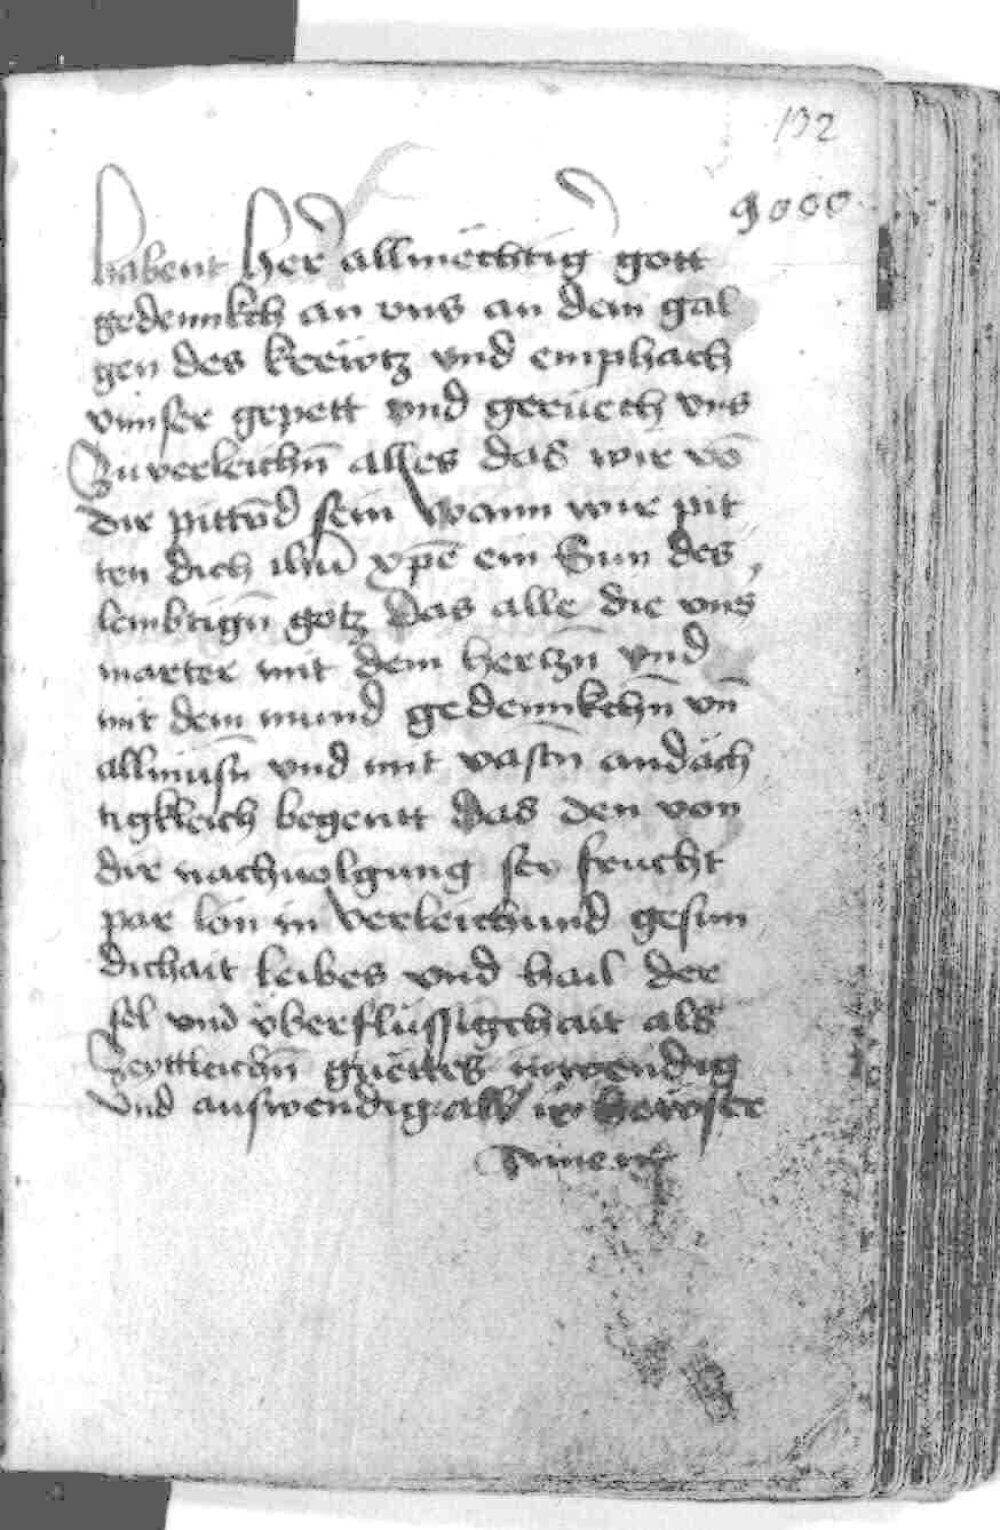 132
9000
habent Her allmechtig gott
gedennkch an vns an dem gal
gen des krewtz vnd emphach
vnnser gepett vnd geruech vns
Zuverleichn̄ alles das wir vō
dir pittvd sein wann wir pit
ten dich ihu xpē ein Sun des
lembtign̄ gotz Das alle die vns
marter mit dem herczn̄ vnd
mit dem mund gedennkchn̄ vn̄
allmusn̄ vnd mit vastn̄ andäch
tigkleich begentt das den von
dir nachuolgung sei frucht
par lon in verleichund gesun
dichait leibes vnd hail der
sel vnd vberflüssigchait als
Zeyttleichn̄ guettes inwendig
vnd auswendig